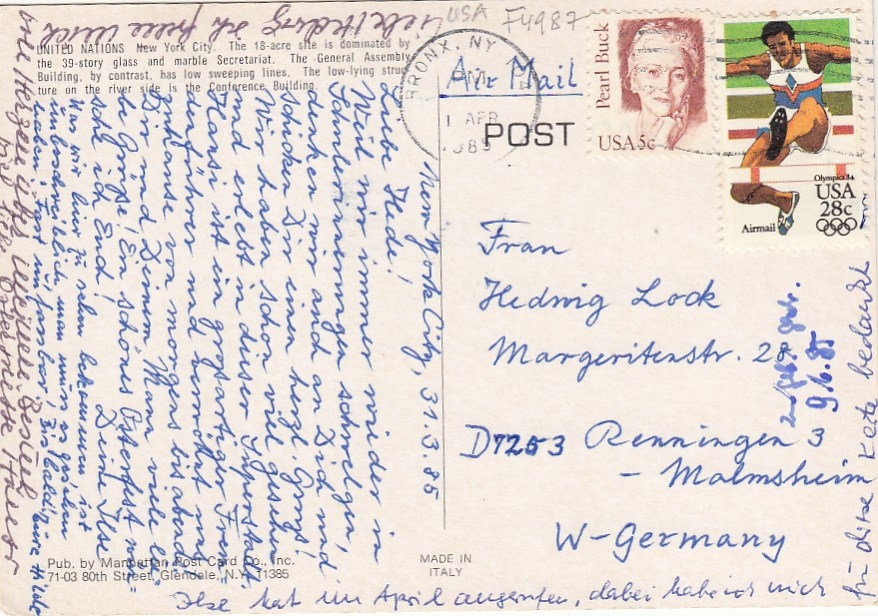 USA F4987
Liebe Hedwig ich freue mich
UNITED NATIONS New York City. The 18-acre site is dominated by
the 39-story glass and marble Secretariat. The General Assembly
Building, by contrast, has low sweeping lines. The low-lying struc-
ture on the river side is the Conference Building.
New York City, 31.3.85
Liebe Hedi!
Weil wir immer wieder in
Schulerinnerungen schwelgen,
denken wir auch an Dich und
schicken Dir einen herzl. Gruß!
Wir haben schon viel gesehen
und erlebt in dieser Superstadt.
ist ein großartiger Frem-
denführer und
zuhause von morgens bis abends
Dir und Deinem Mann viele lie-
be Grüße! Ein schönes Osterfest wün-
sche ich Euch! Deine Ilse
Was wir hier zu sehen bekommen ist
unbeschreiblich, man muss es gesehen
haben, fast unfassbar! Bis bald! Eure Hilde
Pub. by Manhattan Post Card Co., Inc.
71-03 80th Street, Glendale, N.Y. 11385
MADE IN
ITALY
BRONX, NY
PM
1 APR
1985
Air Mail
POST
Pearl Buck
USA 5c
Olympics 84
USA
28c
Airmail
Frau
Hedwig Lock
Margeritenstr. 28
D7253 Renningen 3
- Malmsheim
W-Germany
9.6.85
Ilse hat im April angerufen, dabei habe ich mich
für diese Karte bedankt